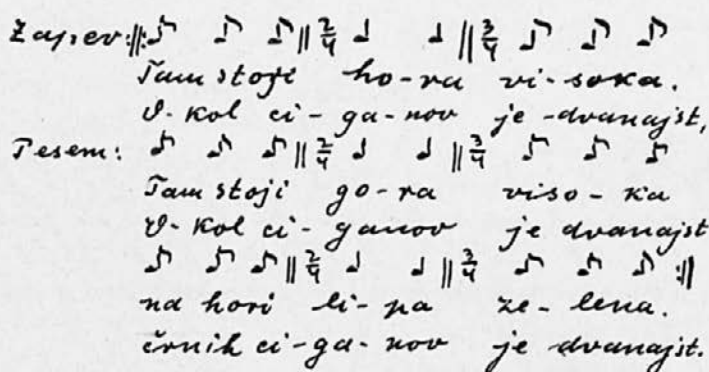 Zapev: 𝄆 ♪ ♪ ♪ || 2/4 ♩ ♩ || 3/4 ♪ ♪ ♪
Tam stoji ho-ra vi-soka.
O-kol ci-ga-nov je-dvanajst,
Pesem: ♪ ♪ ♪ || 2/4 ♩ ♩ || 3/4 ♪ ♪ ♪
Tam stoji go-ra viso-ka
O-kol ci-ganov je dvanajst
♪ ♪ ♪ || 2/4 ♩ ♩ || 3/4 ♪ ♪ ♪ 𝄇
na hori li-pa ze-lena.
črnih ci-ga-nov je dvanajst.